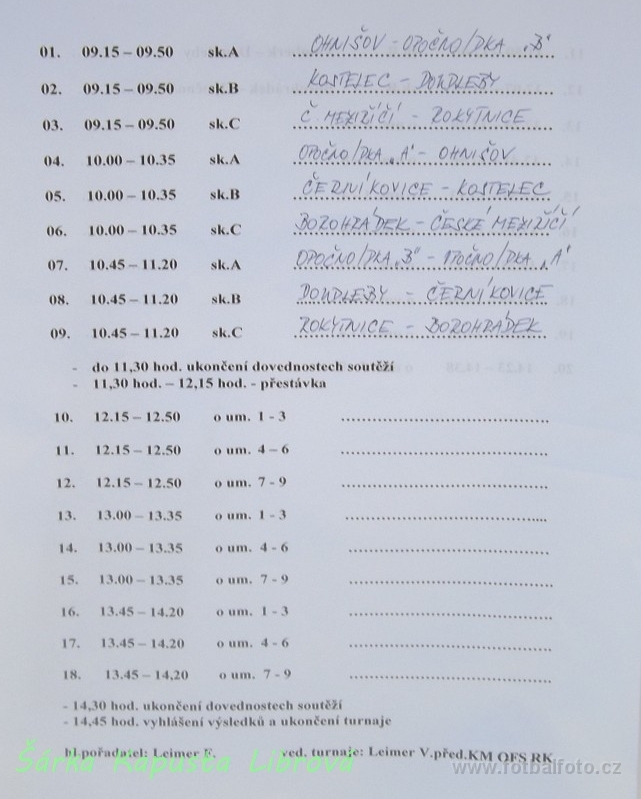 01. 09.15 – 09.50 sk.A OHNIŠOV - OPOČNO/DKA „B"
02. 09.15 – 09.50 sk.B KOSTELEC - DOUDLEBY
03. 09.15 – 09.50 sk.C Č. MEZIŘÍČÍ - ROKYTNICE
04. 10.00 – 10.35 sk.A OPOČNO/DKA „A" - OHNIŠOV
05. 10.00 – 10.35 sk.B ČERNÍKOVICE - KOSTELEC
06. 10.00 – 10.35 sk.C BOROHRÁDEK - ČESKÉ MEZIŘÍČÍ
07. 10.45 – 11.20 sk.A OPOČNO/DKA „B" - OPOČNO/DKA „A"
08. 10.45 – 11.20 sk.B DOUDLEBY - ČERNÍKOVICE
09. 10.45 – 11.20 sk.C ROKYTNICE - BOROHRÁDEK
- do 11,30 hod. ukončení dovednostech soutěží
- 11,30 hod. – 12,15 hod. - přestávka
10. 12.15 – 12.50 o um. 1 - 3
11. 12.15 – 12.50 o um. 4 – 6
12. 12.15 – 12.50 o um. 7 - 9
13. 13.00 – 13.35 o um. 1 - 3
14. 13.00 – 13.35 o um. 4 - 6
15. 13.00 – 13.35 o um. 7 - 9
16. 13.45 – 14.20 o um. 1 - 3
17. 13.45 – 14.20 o um. 4 - 6
18. 13.45 – 14,20 o um. 7 - 9
- 14,30 hod. ukončení dovednostech soutěží
- 14,45 hod. vyhlášení výsledků a ukončení turnaje
hl.pořadatel: Leimer F. ved. turnaje: Leimer V.před.KM OFS RK
Šárka Kapusta Librová www.fotbalfoto.cz